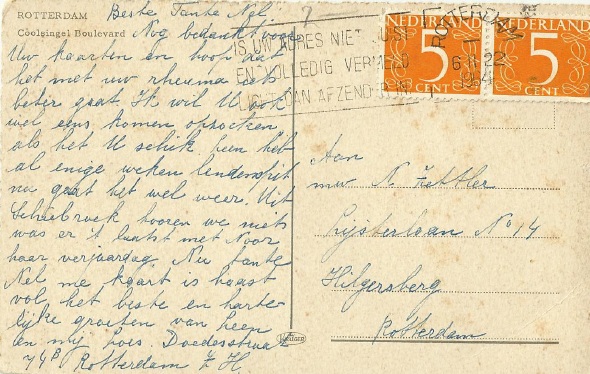 ROTTERDAM
Coolsingel Boulevard
Beste Tante Nel
Nog bedankt voor
Uw kaarten en hoop dat
het met uw rheuma ook
beter gaat. Ik wil U ook
wel eens komen opzoeken
als het U schik heen het
al enige weken lendenspit
nu gaat het wel weer. Uit
Schiebroek hooren we niets
was er 't laatst met Noor
haar verjaardag Nu tante
Nel me kaart is haast
vol, het beste en harte-
lijke groeten van heen
en mij Loes. Doedesstraat
74B Rotterdam Z H
IS UW ADRES NIET JUIST
EN VOLLEDIG VERMELD
LICHT DAN AFZENDER IN
ROTTERDAM
NEDERLAND
5
CENT
NEDERLAND
5
CENT
Aan
mw N. Zettler
Lijsterlaan No 14
Hilgersberg
Rotterdam